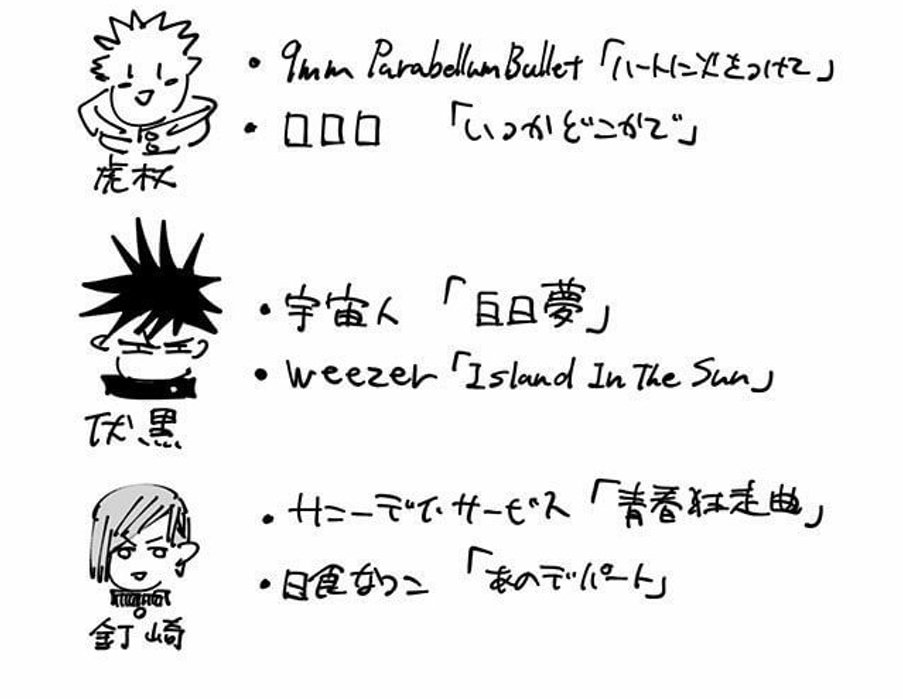 ・9mm Parabellum Bullet「ハートに火をつけて」
・口口口 「いつかどこかで」
虎杖
・宇宙人 「白日夢」
・weezer「Island In The Sun」
伏黒
・サニーデイ・サービス「青春狂走曲」
・日食なつこ 「あのデパート」
釘崎